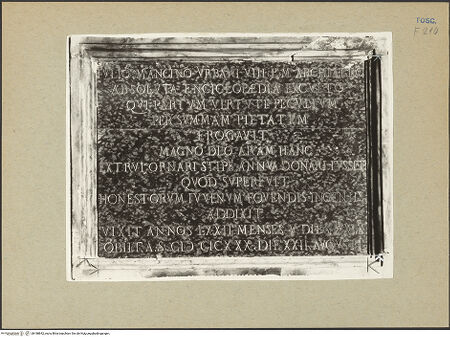 FOSC.
F 210
IVLIO MANCINO VRBANI VIII P M
ABSOLVTA ENCICLOPÆDIA EXCVLTO
QVI PARTVM VIRTVTE PECVLIVM
PER SVMMAM PIETATEM
EROGAVIT
MAGNO DEO ARAM HANC
EXTRVI ORNARI ET ANNVA DONARI IVSSIT
QVOD SVPERFVIT
HONESTORVM IVVENVM FOVENDIS INGENIIS
ADDIXIT
VIXIT ANNOS MENSES V DIES
OBIIT A S CIƆ CICXXX DIE XXII AVGVSTI